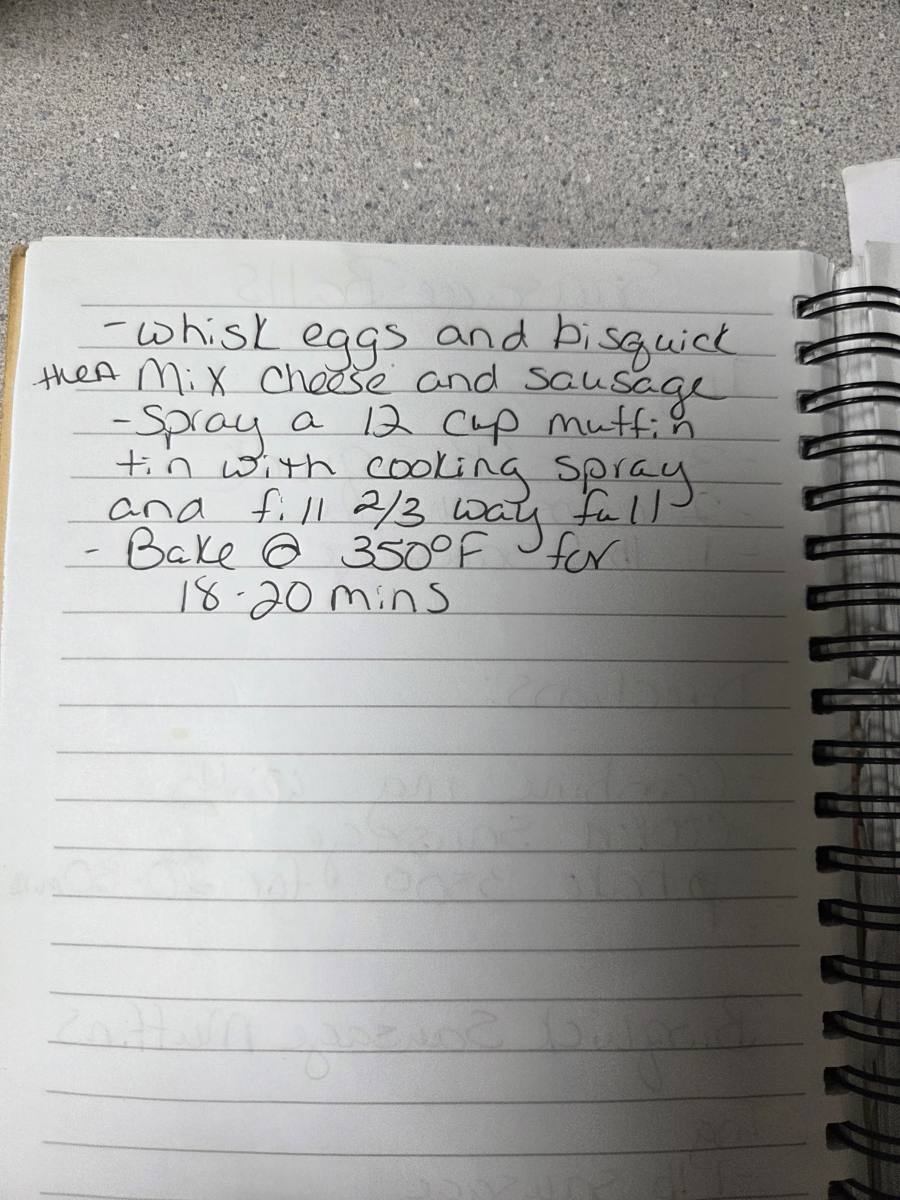 - whisk eggs and bisquick
then Mix cheese and sausage
- Spray a 12 cup muffin
tin with cooking spray
and fill 2/3 way full
- Bake @ 350°F for
18-20 mins